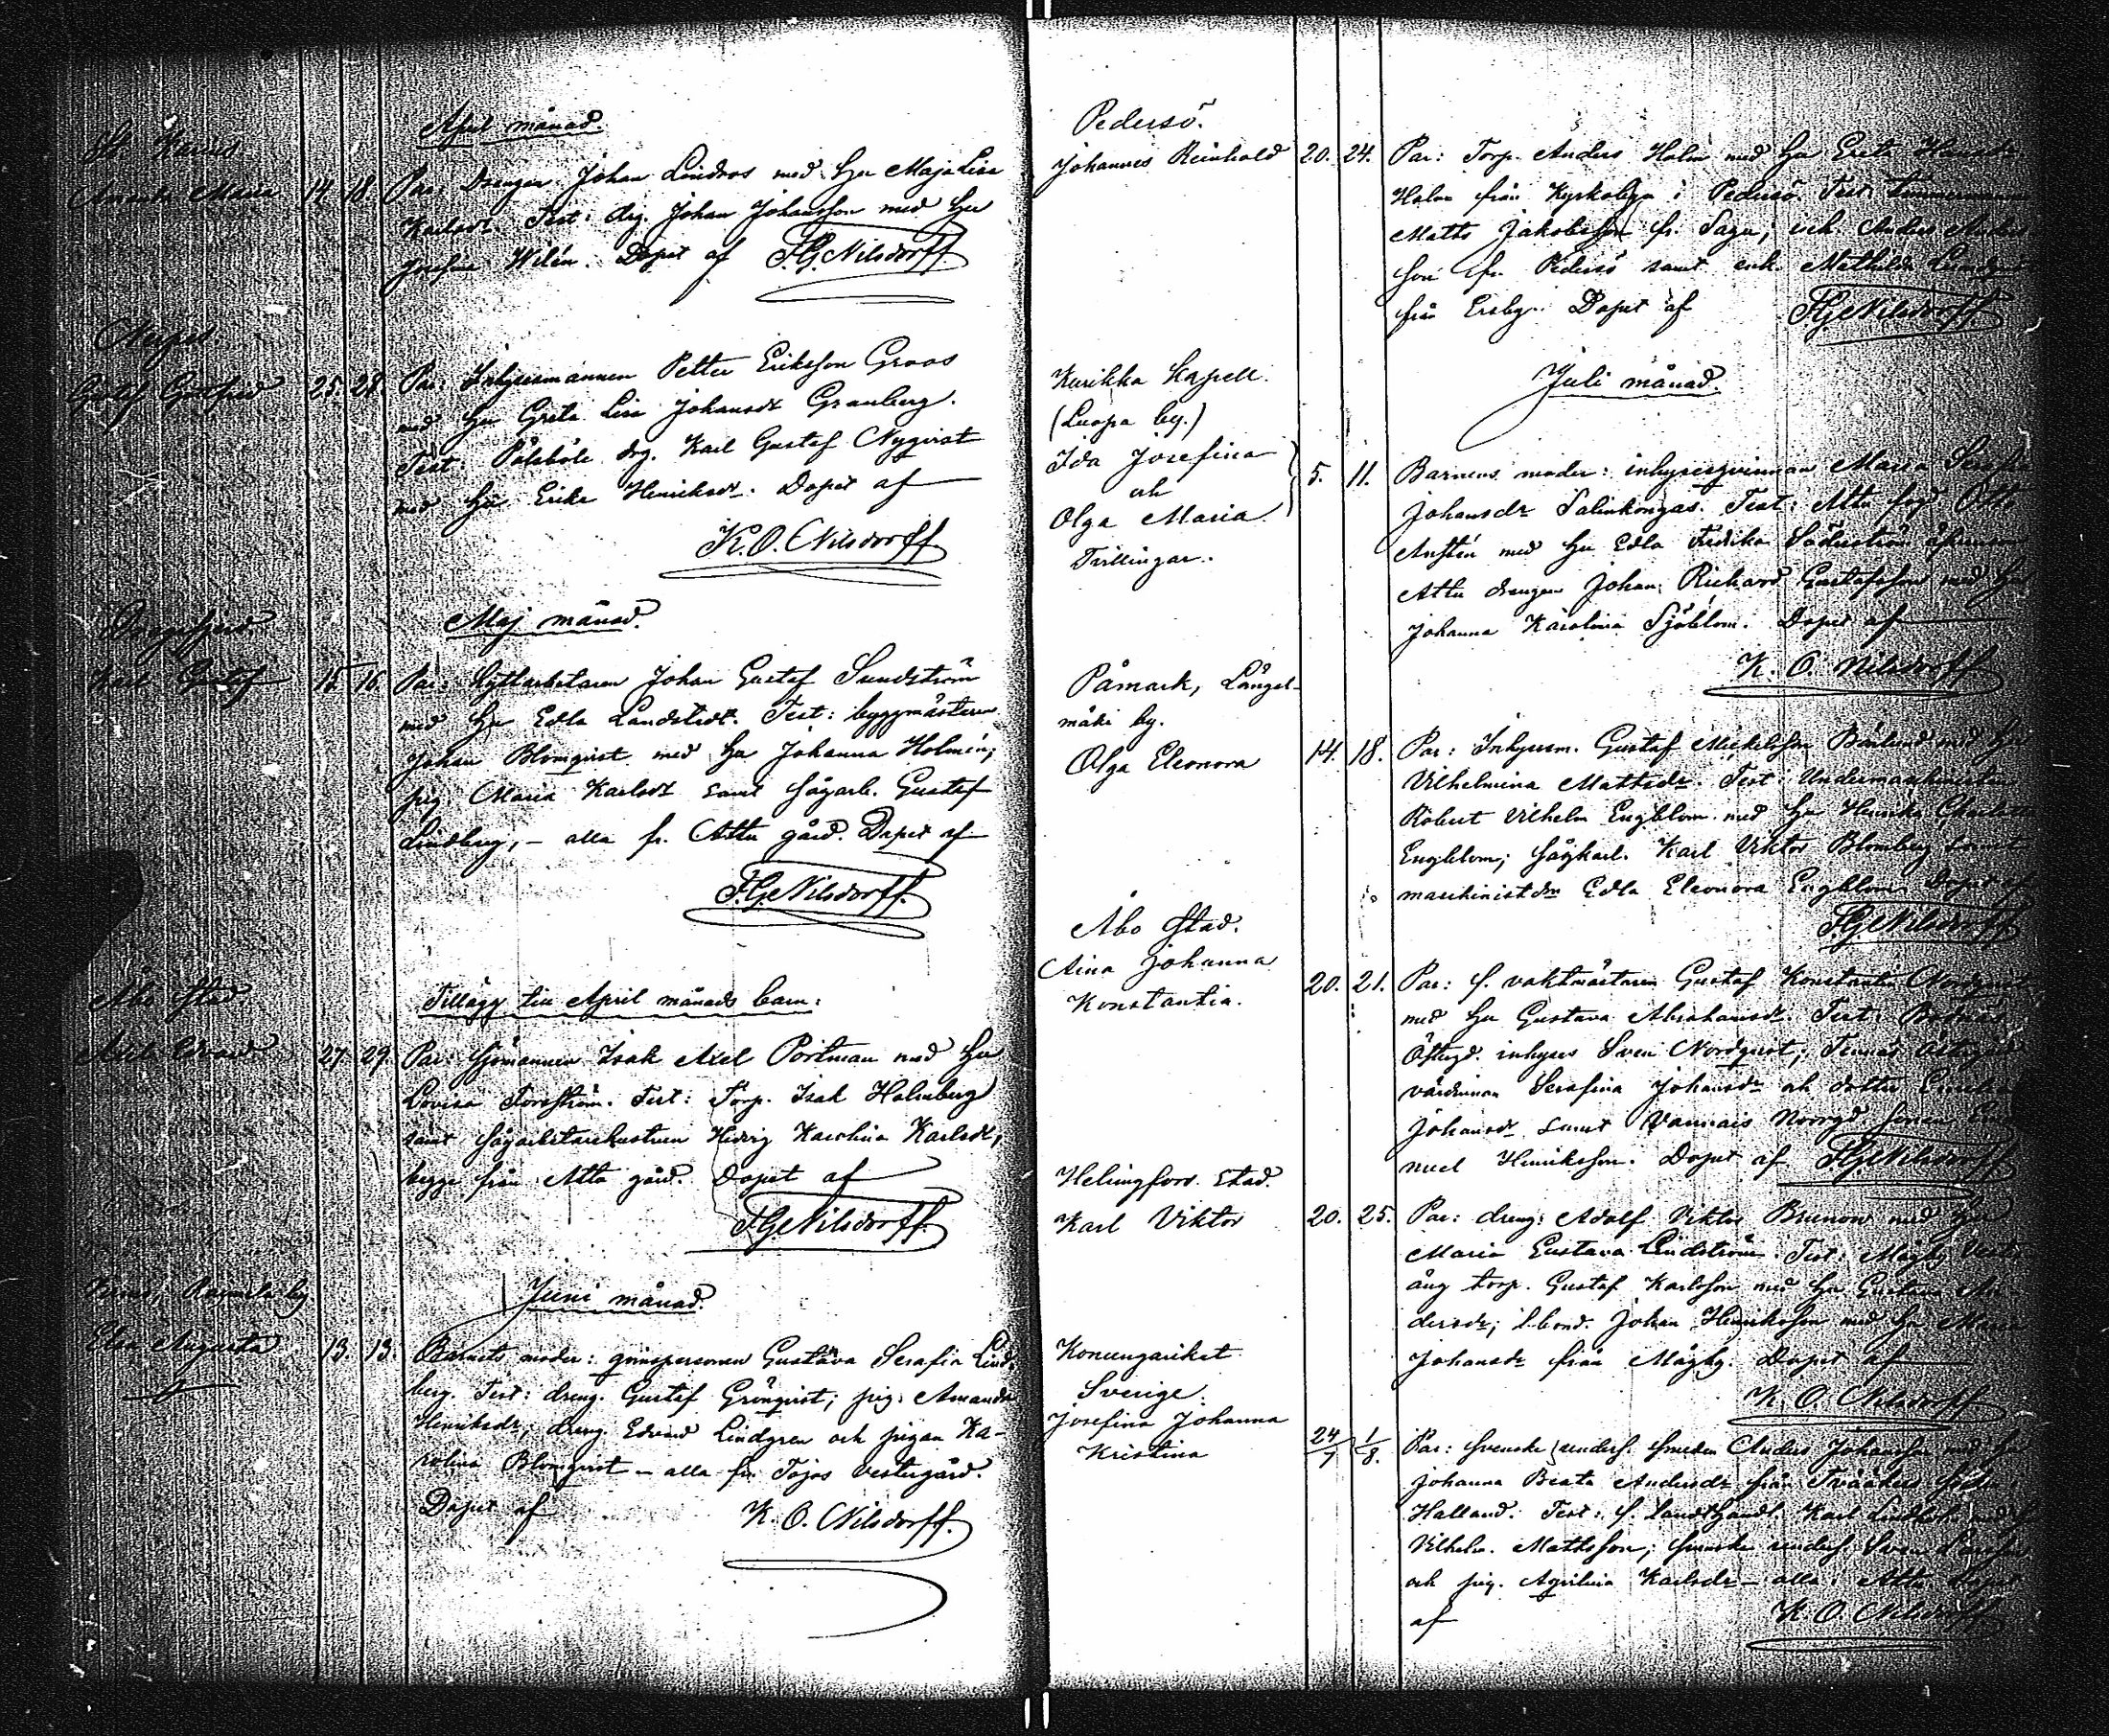 April månad.
St. Karins.
Amanda Maria 14. 18. Par: Drengen Johan Lindros med hu Maja Lisa
Karlsdr. Test: drg. Johan Johansson med hu
Josefina Wilén. Döpet af F.G. Nilsdorff
Gustaf Gottfrid 25. 28. Par: Inhysesmannen Petter Eriksson Groos
med hu Greta Lisa Johansdr Granberg.
Test: Pålsböle drg. Karl Gustaf Nyqvist
med hu Erika Henriksdr. Döpet af
K. O. Nilsdorff
Maj månad.
Dragsfjerd.
Karl Gustaf 15. 16. Par: Hyttarbetaren Johan Gustaf Sundström
med hu Edla Landstedt. Test: byggmästaren
Johan Blomqvist med hu Johanna Holmén;
pig Maria Karlsdr samt sågarb. Gustaf
Lindberg, – alla fr. Attu gård. Döpet af
F.G. Nilsdorff.
Åbo Stad.
Tillägg till April månads barn:
Axel Edvard 27. 29. Par: Sjömannen Isak Axel Portman med hu
Lovisa Forsström. Test: Torp. Isak Holmberg
samt sågarbetarehustrun Hedvig Karolina Karlsdr,
begge från Attu gård. Döpet af
F.G. Nilsdorff.
Juni månad.
Elsa Augusta 13. 13. Barnets moder: qvinspersonen Gustava Serafia Lind-
berg. Test: dreng. Gustaf Grönqvist; pig. Amanda
Henriksdr; dreng. Edvard Lindgren och pigan Ka-
rolina Blomqvist – alla fr. Tojas Vestergård.
Döpet af K. O. Nilsdorff.
Pedersö.
Johannes Reinhold 20. 24. Par: Torp. Anders Holm med hu Greta
Holm från Kyrkobyn i Pedersö. Test:
Matts Jakobsson fr. Sagu, och Anders Anders-
son fr. Pedersö samt enk. Mathilda
från Ersby. Döpet af F.G. Nilsdorff
Juli månad.
Kurikka Kapell.
(Luopa by.)
Ida Josefina
och
Olga Maria
Tvillingar.
5. 11. Barnens moder: inhysesqvinnan Maria
Johansdr Salinkongas. Test: Attu
med hu Edla Fredrika Söderström
Attu drengen Johan Richard Gustafsson med hu
Johanna Karolina Sjöblom. Döpet af
K. O. Nilsdorff
Påmark, Långel-
mäki by.
Olga Eleonora 14. 18. Par: Inhysesm. Gustaf Mickelsson Bärlund med hu
Vilhelmina Mattsdr. Test: Undermaschinisten
Robert Vilhelm Engblom med hu Henrika Charlotta
Engblom; Sågkarl. Karl Viktor Blomberg samt
maschinistdn Edla Eleonora Engblom. Döpet af
F.G. Nilsdorff
Åbo Stad.
Aina Johanna
Konstantia. 20. 21. Par: f. vaktmästaren Gustaf Konstantin Nordqvist
med hu Gustava Abrahamsdr. Test:
Östergd. inhyses Sven Nordqvist;
värdinnan Serafina Johansdr och dotter
Johansdr samt Vannais Norrgd sonen Ema-
nuel Henriksson. Döpet af F.G. Nilsdorff
Helsingfors Stad.
Karl Viktor 20. 25. Par: dreng. Adolf Viktor Brunow med hu
Maria Gustava Lindström. Test: Mågby
äng torp. Gustaf Karlsson med hu Gustava An-
dersdr; l. bond. Johan Henriksson med hu Maria
Johansdr från Mågby. Döpet af
K. O. Nilsdorff
Konungariket
Sverige.
Josefina Johanna
Kristina 24/7 1/8. Par: Svenske unders. smeden Anders Johansson med hu
Johanna Beata Andersdr från Tvååkers
Halland. Test: f. landthandl. Karl
Vilhelm. Mattsson; svenske unders. Sven
och pig. Karlsdr – alla Attu. Döpet
af K. O. Nilsdorff